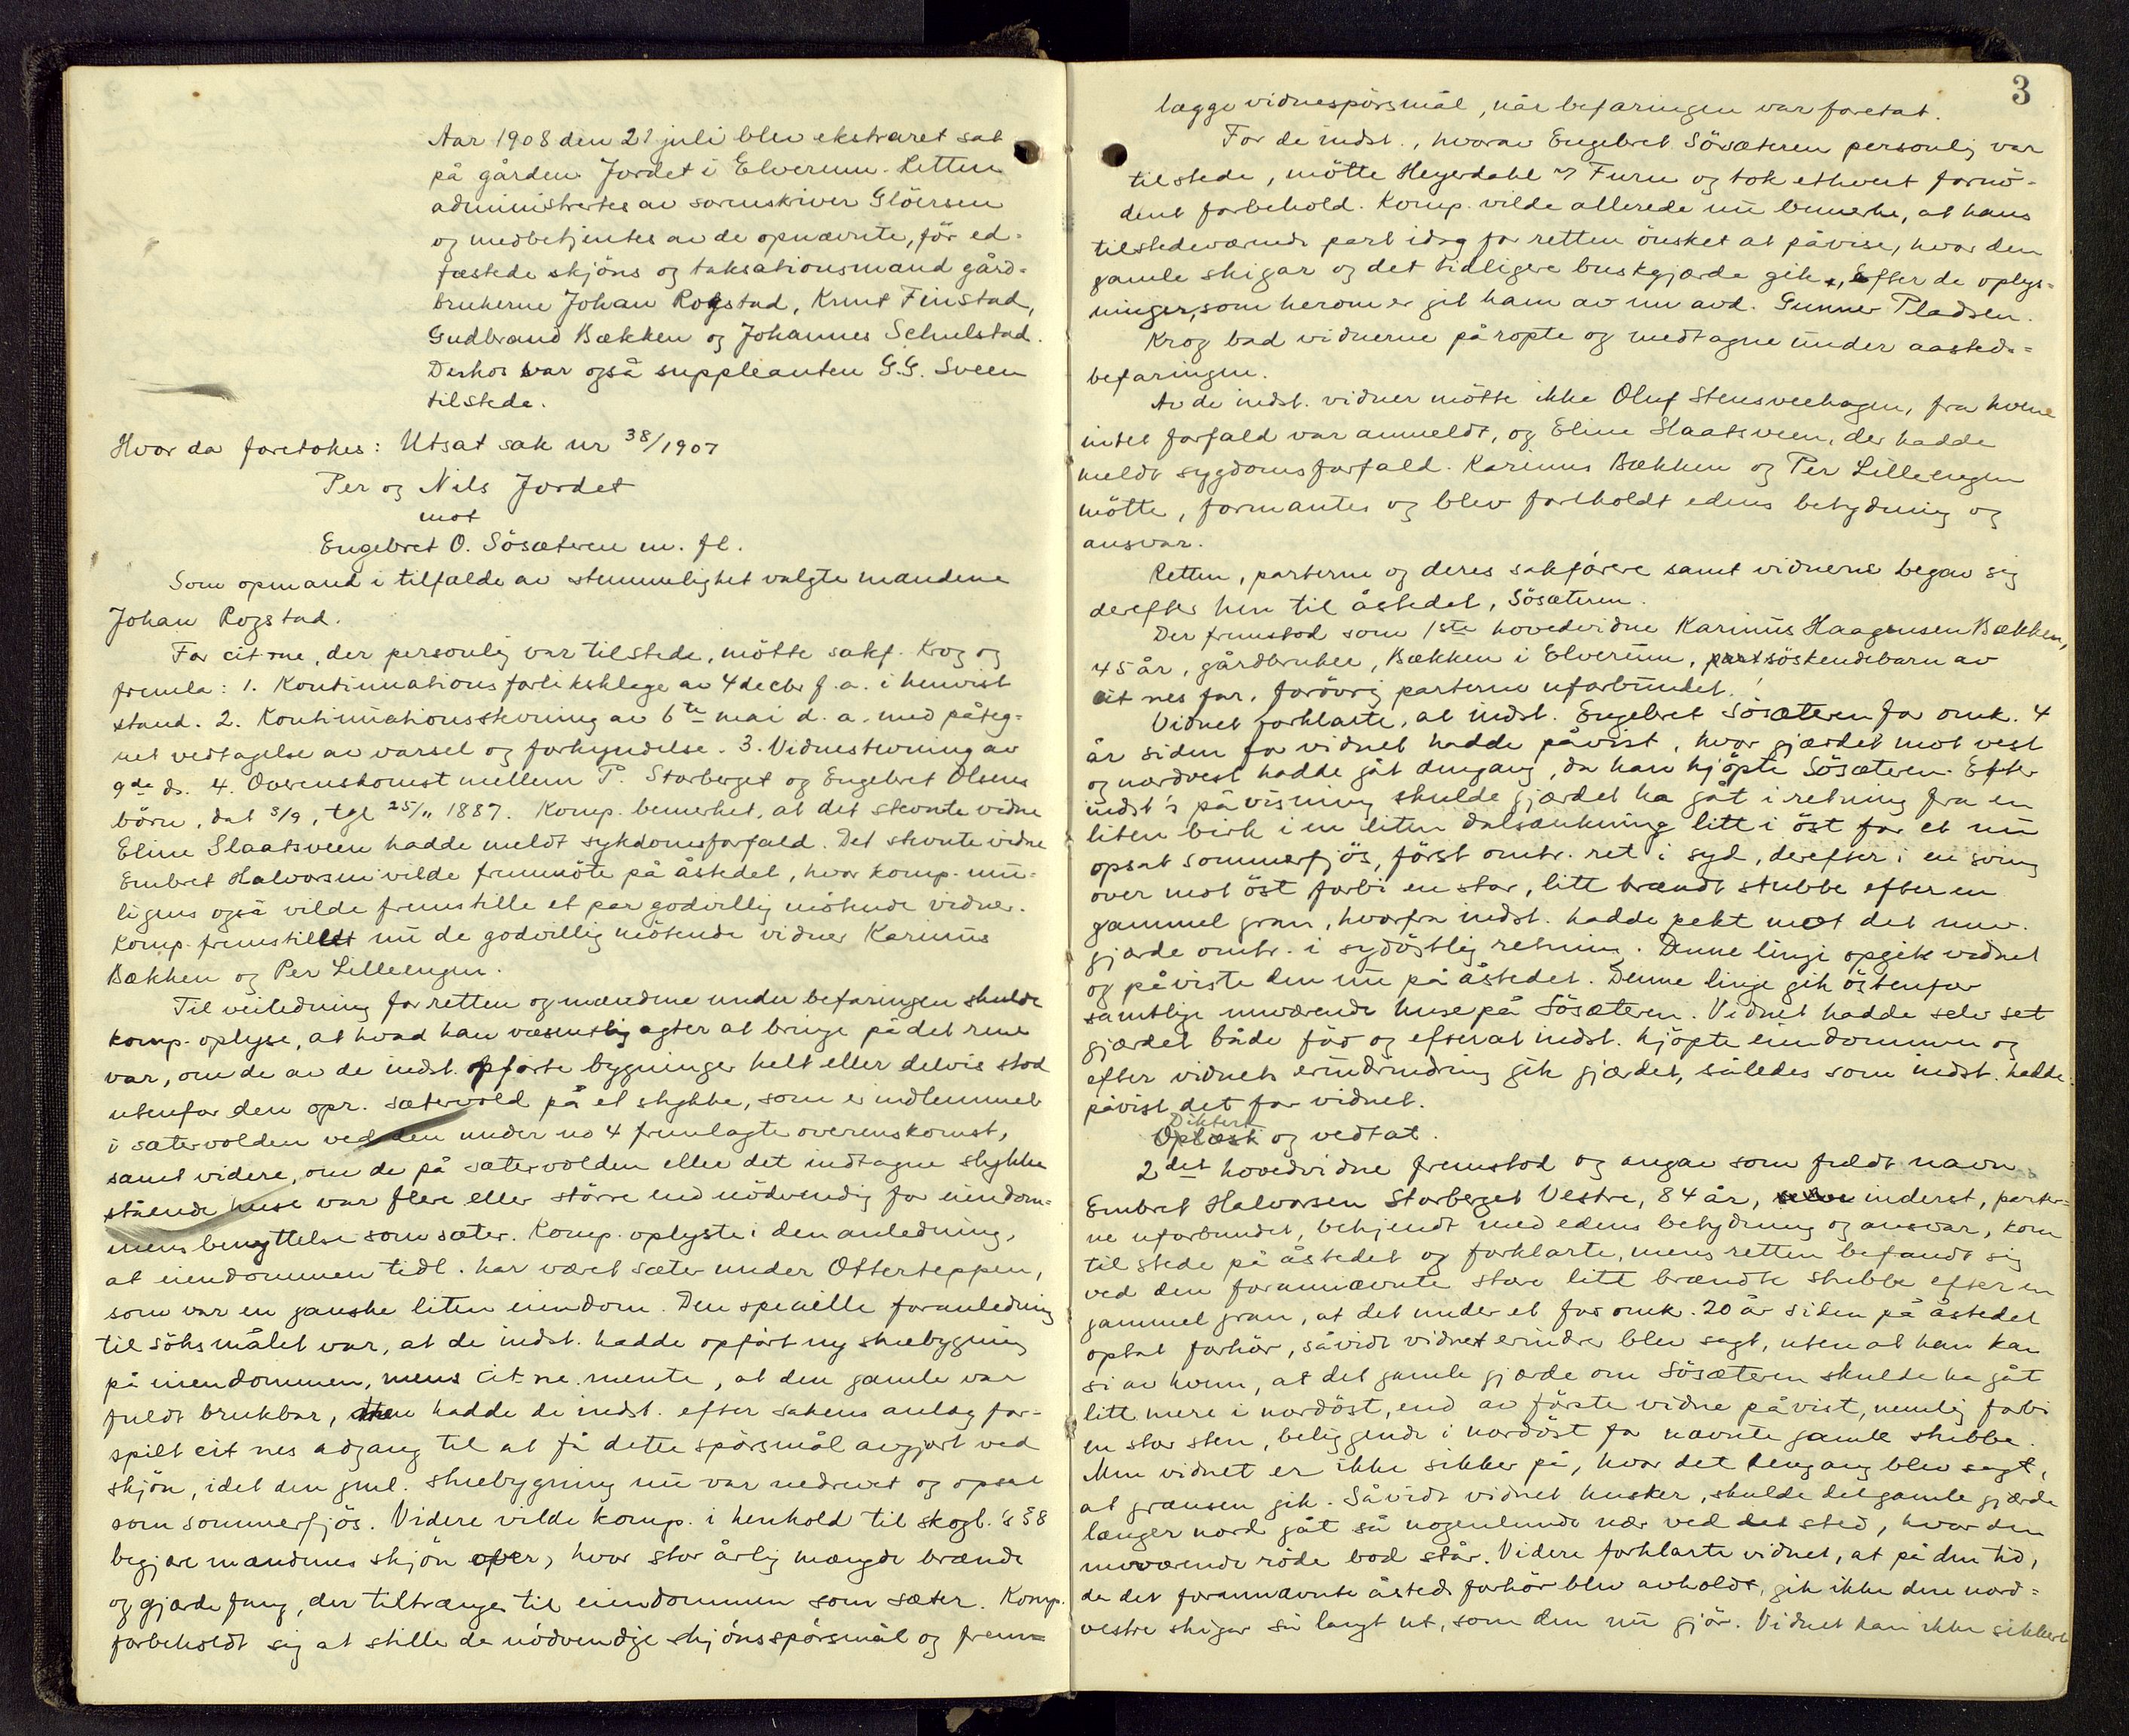 Aar 1908 den 21 juli blev ekstraret sat
på gården Jordet i Elverum. Retten
administrertes av sorenskriver Glöersen
og medbetjentes av de opnævnte, før ed-
fæstede skjöns og taksationsmænd gård-
brukerne Johan Rogstad, Knut Finstad,
Gudbrand Bækken og Johannes Schulstad.
Derhos var også suppleanten G.G. Sveen
tilstede.
Hvor da foretokes: Utsat sak nr 38/1907
Per og Nils Jordet
mot
Engebret O. Sösæteren m. fl.
Som opmand i tilfælde av stemmelighet valgte mændene
Johan Rogstad.
For cit-ne, der personlig var tilstede, mötte sakf. Krog og
fremla: 1. Kontinuationsforlikeklage av 4 decbr f.a. i henvist
stand. 2. Kontinuationsstevning av 6te mai d.a. med påteg-
net vedtagelse av varsel og forkyndelse. 3. Vidnestevning av
9de ds. 4. Overenskomst mellem P. Storberget og Engebret Olsens
börn, dat 3/9, tgl 25/11 1887. Komp. bemerket, at det stevnte vidne
Eline Slaatsveen hadde meldt sykdomsforfald. Det stevnte vidne
Embret Halvorsen vilde fremmöte på åstedet, hvor komp. mu-
ligens også vilde fremstille et par godvillig mötende vidner.
Komp. fremstillet nu de godvillig mötende vidner Karinus
Bækken og Per Lilleengen.
Til veiledning for retten og mændene under befaringen skulde
komp. oplyse, at hvad han væsentlig agter at bringe på det rene
var, om de av de indst. opförte bygninger helt eller delvis stod
utenfor den opr. sætervold på et stykke, som er indlemmet
i sætervolden ved den under no 4 fremlagte overenskomst,
samt videre, om de på sætervolden eller det indtagne stykke
stående huse var flere eller större end nödvendig for eiendom-
mens benyttelse som sæter. Komp. oplyste i den anledning,
at eiendommen tidl. har været sæter under Otterteppen,
som var en ganske liten eiendom. Den specielle foranledning
til söksmålet var, at de indst. hadde opfört ny stuebygning
på eiendommen, mens cit-ne mente, at den gamle var
fuldt brukbar, men hadde de indst. efter sakens anlag for-
spilt cit-nes adgang til at få dette spörsmål avgjort ved
skjön, idet den gml. stuebygning nu var nedrevet og opsat
som sommerfjös. Videre vilde komp. i henhold til skogl.'s § 8
begjære mændenes skjön over, hvor stor årlig mængde brænde
og gjærdefang, der tiltrænges til eiendommen som sæter. Komp.
forbeholdt sig at stille de nödvendige skjönsspörsmål og frem=
3
lægge vidnespörsmål, når befaringen var foretat.
For de indst., hvorav Engebret Sösæteren personlig var
tilstede, mötte Heyerdahl v/ Furu og tok ethvert fornö-
dent forbehold. Komp. vilde allerede nu bemerke, at hans
tilstedeværende part idag for retten önsket at påvise, hvor den
gamle skigar og det tidligere buskgjærde gik, efter de oplys=
ninger, som herom er git ham av nu avd. Gunner Pladsen.
Krog bad vidnerne påropte og medtagne under aasteds=
befaringen.
Av de indst. vidner mötte ikke Oluf Stensveehagen, fra hvem
intet forfald var anmeldt, og Eline Slaatsveen, der hadde
meldt sygdomsforfald. Karinus Bækken og Per Lilleengen
mötte, formantes og blev foreholdt edens betydning og
ansvar.
Retten, parterne og deres sakförere samt vidnerne begav sig
derefter hen til åstedet, Sösæteren.
Der fremstod som 1ste hovedvidne Karinus Haagensen Bækken,
45 år, gårdbruker, Bækken i Elverum, söskendebarn av
cit nes far, forövrig parterne uforbundet.
Vidnet forklarte, at indst. Engebret Sösæteren for omk. 4
år siden for vidnet hadde påvist, hvor gjærdet mot vest
og nordvest hadde gåt dengang, da han kjöpte Sösæteren. Efter
indst's påvisning skulde gjærdet ha gåt i retning fra en
liten birk i en liten dalsænkning litt i öst for et nu
opsat sommerfjös, först omtr. ret i syd, derefter i en sving
over mot öst forbi en stor, litt brændt stubbe efter en
gammel gran, hvorfra indst. hadde pekt mot det nuv.
gjærde omtr. i sydöstlig retning. Denne linje opgik vidnet
og påviste den nu på åstedet. Denne linje gik östenfor
samtlige nuværende huse på Sösæteren. Vidnet hadde selv set
gjærdet både för og efterat indst. kjöpte eiendommen og
efter vidnets erindrindring gik gjærdet, således som indst. hadde
påvist det for vidnet.
Diktert
Oplæst og vedtat.
2det hovedvidne fremstod og angav som fuldt navn
Embret Halvorsen Storberget Vestre, 84 år, inderst, parter=
ne uforbundet, bekjendt med edens betydning og ansvar, kom
til stede på åstedet og forklarte, mens retten befandt sig
ved den forannævnte store litt brændte stubbe efter en
gammel gran, at det under et for omk. 20 år siden på åstedet
optat forhör, såvidt vidnet erindrer blev sagt, uten at han kan
si av hvem, at det gamle gjærde om Sösæteren skulde ha gåt
litt mere i nordöst, end av förste vidne påvist, nemlig forbi
en stor sten, beliggende i nordöst for nævnte gamle stubbe.
Men vidnet er ikke sikker på, hvor det dengang blev sagt,
at grænsen gik. Såvidt vidnet husker, skulde det gamle gjærde
længer nord gåt så nogenlunde nær ved det sted, hvor den
nuværende röde bod står. Videre forklarte vidnet, at på den tid,
da det forannævnte åstedsforhör blev avholdt, gik ikke den nord=
vestre skigar så langt ut, som den nu gjör. Vidnet kan ikke sikkert